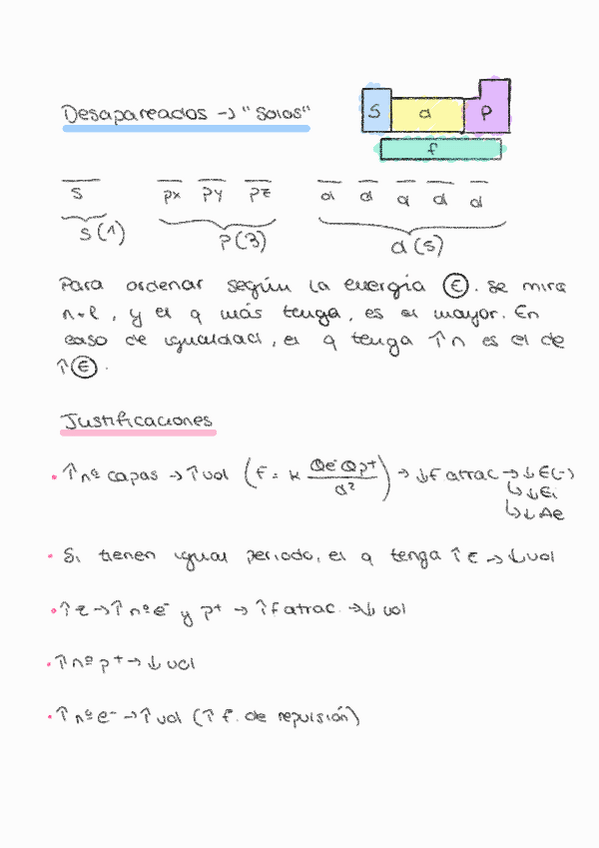 Desapareados → "Solos"
s d p
f
s px py pz d d d d d
s(1) p(3) d(5)
Para ordenar según la energía Ⓔ. se mira
n+l, y el q más tenga, es el mayor. En
caso de igualdad, el q tenga ↑n es el de
↑Ⓔ.
Justificaciones
• ↑nº capas → ↑vol (F = K Qe⁻Qp⁺/d²) → ↓F atrac → ↓E(-)
↳↓Ei
↳↓Ae
• Si tienen igual periodo, el q tenga ↑z → ↓vol
• ↑z → ↑nºe⁻ y p⁺ → ↑f atrac. → ↓ vol
• ↑nº p⁺ → ↓ vol
• ↑nºe⁻ → ↑vol (↑ f. de repulsión)